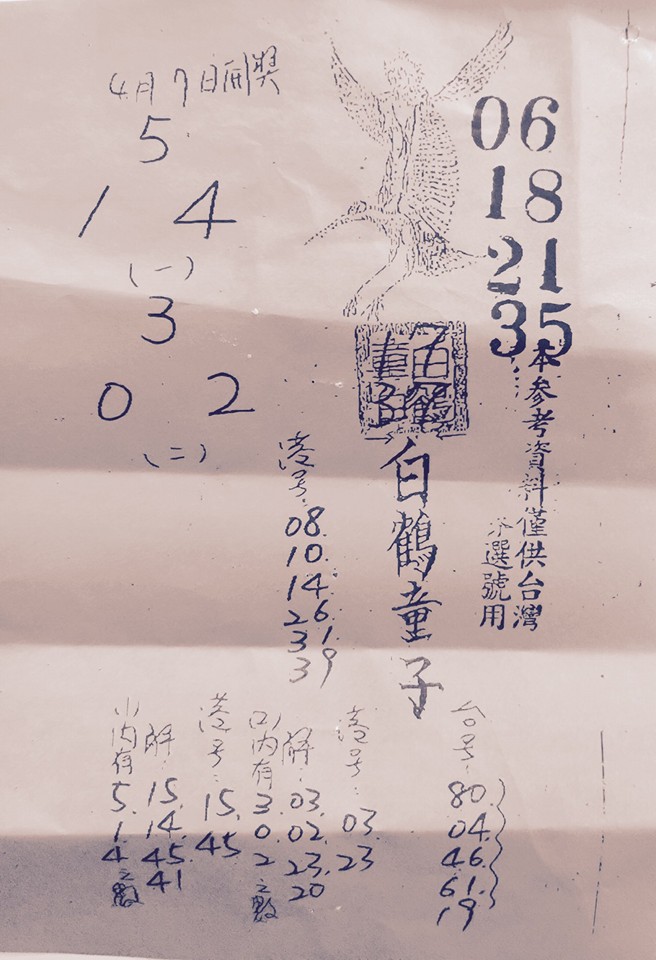 4月7日開獎
5
1 4
(一)
3
0 2
(二)
06
18
21
35
本參考資料僅供台灣
選號用
白鶴童子
白鶴童子
港号:
08.
10.
14.
26.
31.
39
(1)內有
5.
1.
4
之數
解:
15.
14.
45.
41
港号:
15.
45
(2)內有
3
0
2
之數
解:
03.
02.
23.
20
港号:
03.
23
台号:
80
04
46
61
19